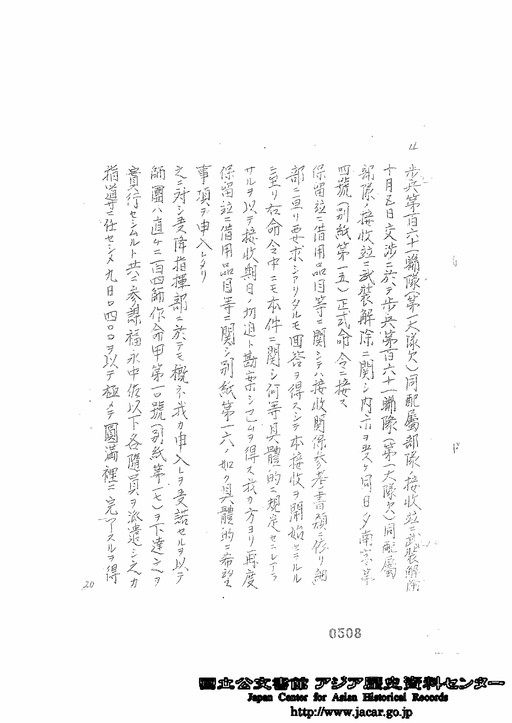 4 歩兵第百六十一聯隊(第一大隊欠)同配屬部隊ノ接收竝ニ武裝解除
十月五日交渉ニ於テ歩兵第百六十一聯隊(第一大隊欠)同配屬
部隊ノ接收竝ニ武裝解除ニ関シ内示ヲ受ケ同日夕南字第
四號(別紙第一五)正式命令ニ接ス
保留竝ニ借用品目等ニ関シテハ接收関係参考書類ニ依リ細
部ニ亘リ要求シアリタルモ回答ヲ得スシテ本接收ヲ開始セラルル
ニ至リ右命令中ニモ本件ニ関シ何等具體的ニ規定セシレアラ
サルヲ以テ接收期日ノ切迫ト勘案シ已ムヲ得ス我カ方ヨリ再度
保留竝ニ借用品目等ニ関シ別紙第一六ノ如ク具體的ニ希望
事項ヲ申入レタリ
之ニ対シ受降指揮部ニ於テモ概ネ我カ申入レヲ受諾セルヲ以テ
師團ハ直ケニ二百四師作命甲第一〇號(別紙第一七)ヲ下達之ヲ
實行セシムルト共ニ参謀福永中佐以下各隨員ヲ派遣シ之カ
指導ニ任セシメ九日一四〇〇ヲ以テ極メテ圓滿裡ニ完了スルヲ得
20
0208
国立公文書館 アジア歴史資料センター
Japan Center for Asian Historical Records
http://www.jacar.go.jp